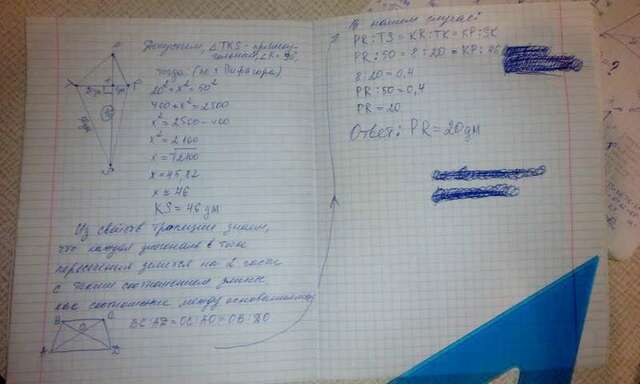 Допустим, △TKS - прямоу-
гольный, ∠K = 90°,
тогда (по т. Пифагора)
20² + x² = 50²
400 + x² = 2500
x² = 2500 - 400
x² = 2100
x = √2100
x = 45,82
x ≈ 46
KS = 46 дм
Из свойств трапеции знаем,
что каждая диагональ в точке
пересечения делится на 2 части
с таким соотношением длины,
как соотношение между основаниями
BC:AD = OC:AO = OB:DO
B C
O
A D
В нашем случае:
PR:TS = KR:TK = KP:SK
PR:50 = 8:20 = KP:46
8:20 = 0,4
PR:50 = 0,4
PR = 20
Ответ: PR = 20 дм